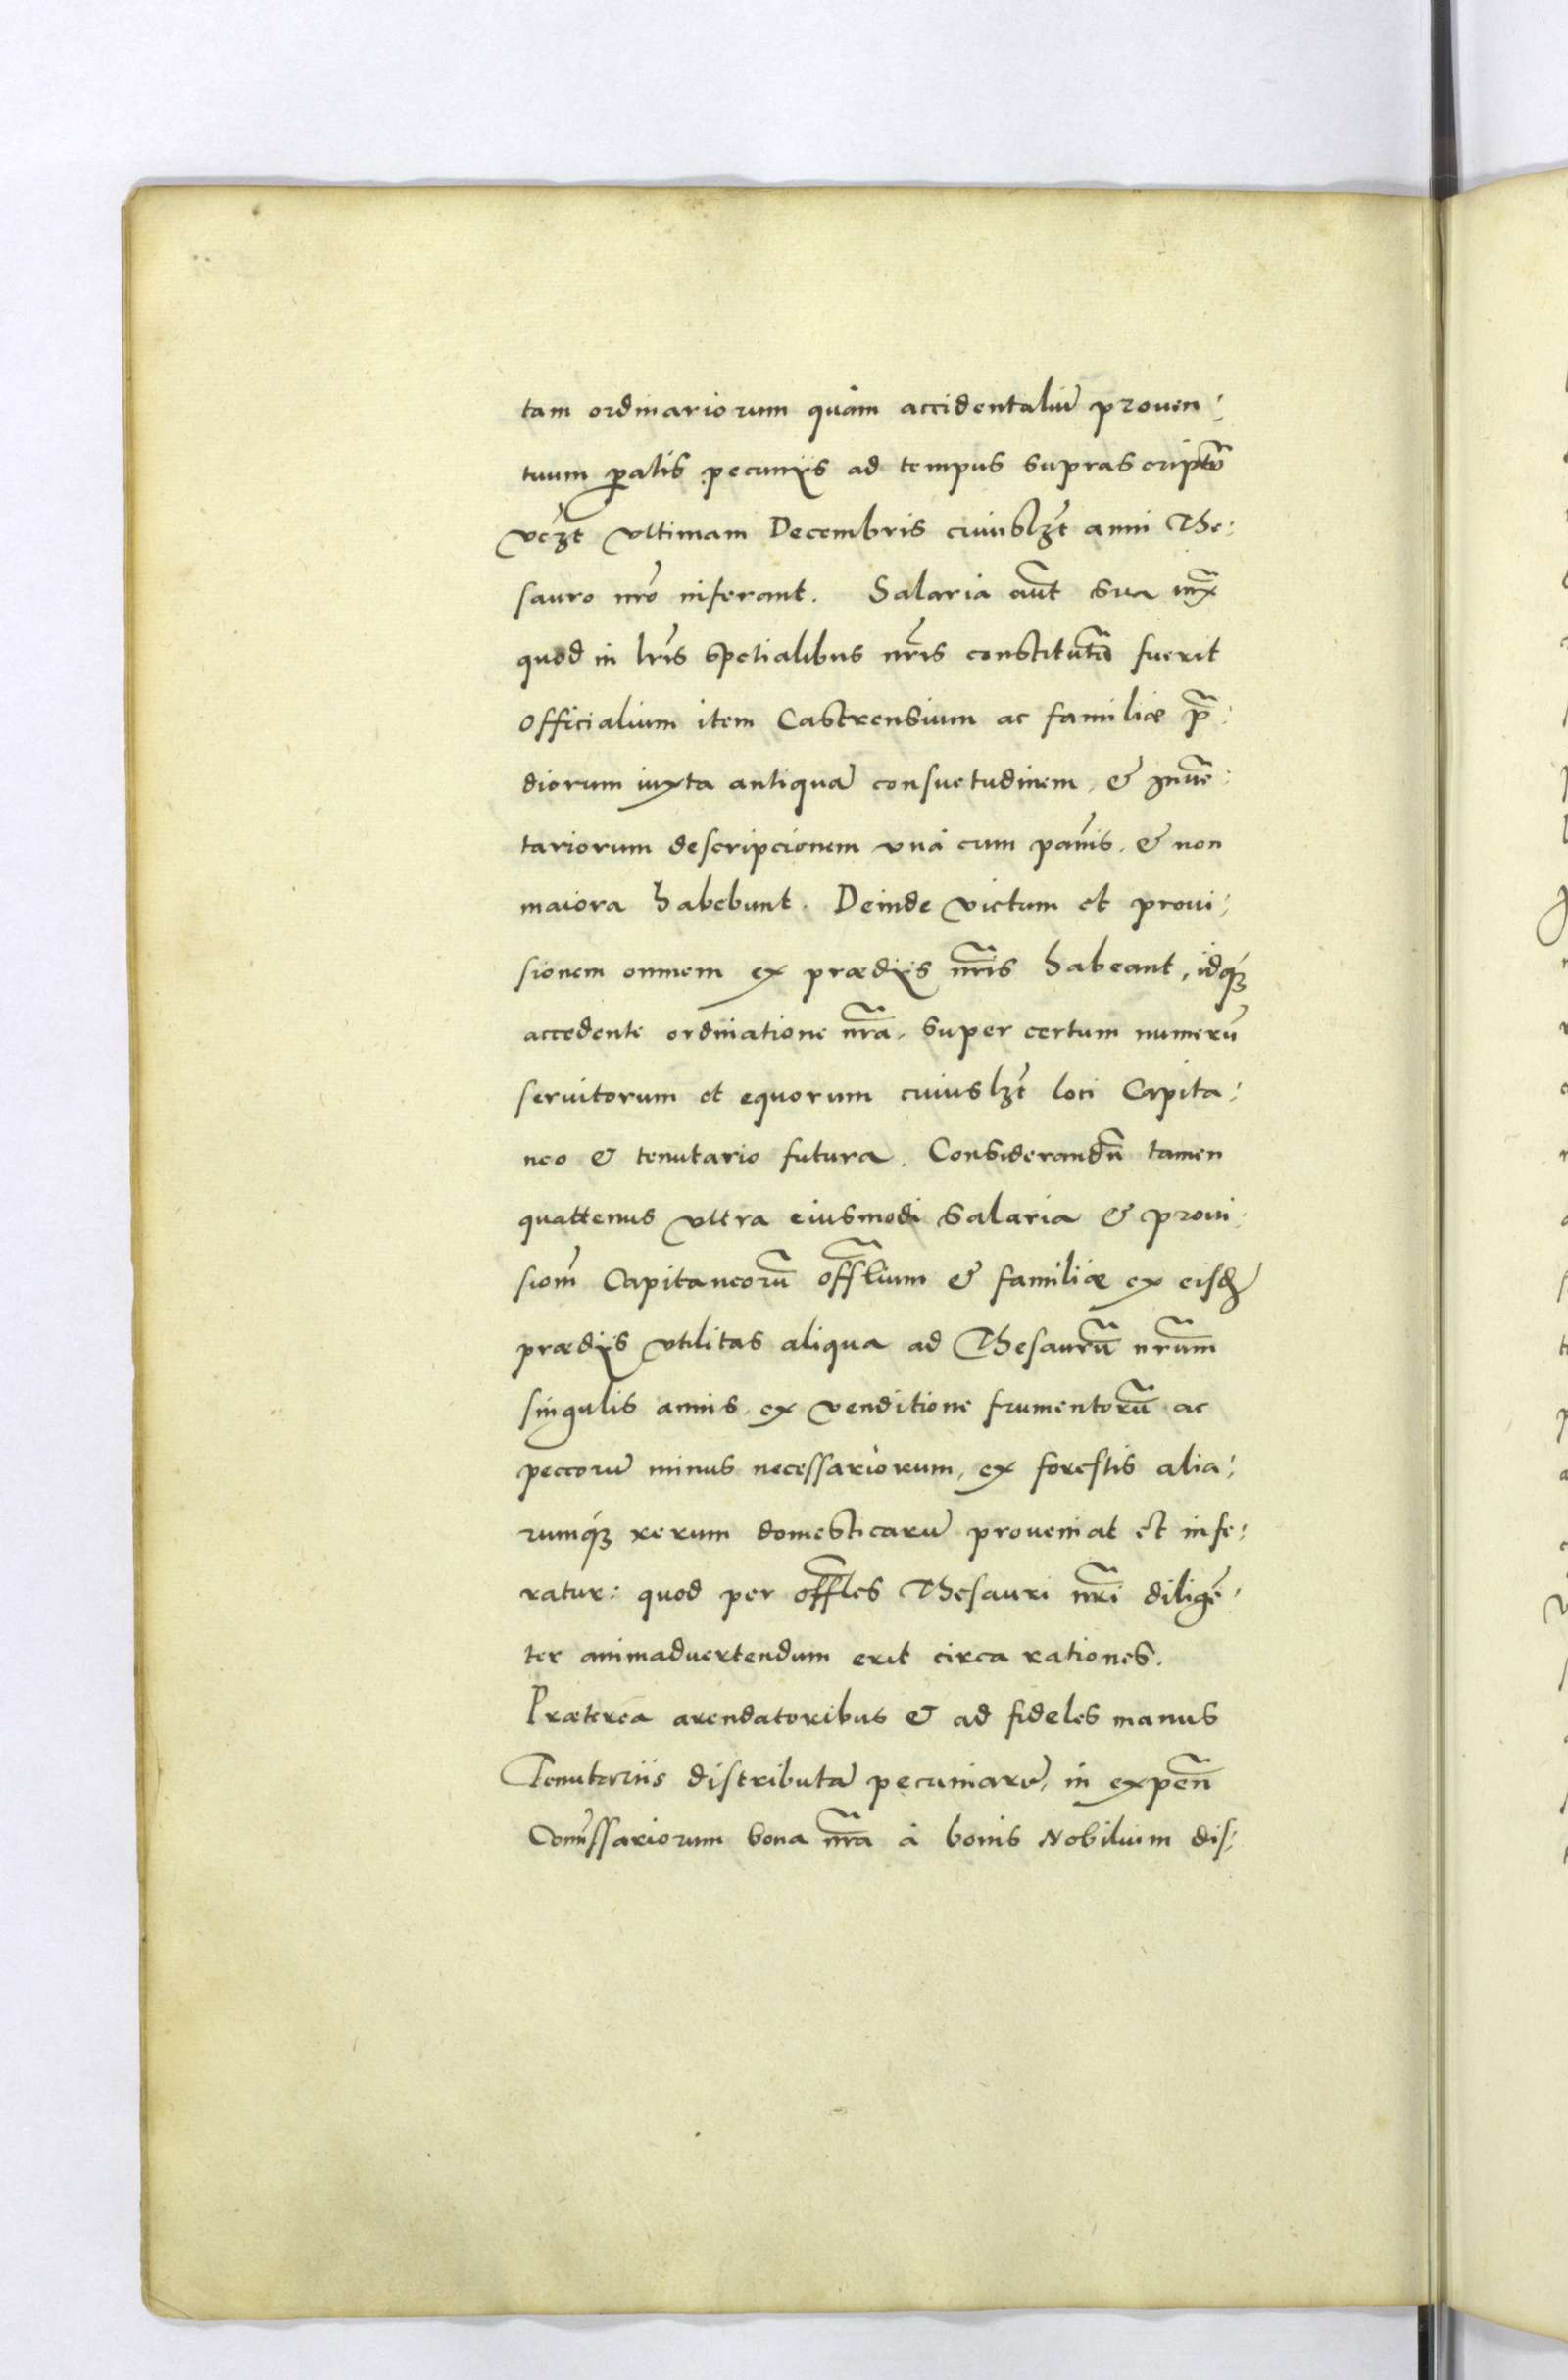 tam ordinariorum quàm accidentaliũ prouen:
tuum p̱atis pecunijs ad tempus suprascriptũ
vczt vltimam Decembris cuiuslzt anni The:
sauro nr̃o inferant. Salaria aũt sua iux̃
quod in lr̃is spetialibus nr̃is constitutũ fuerit
Officialium item Castrensium ac familiæ p̃:
diorum iuxta antiquã consuetudinem, & Inuẽ:
tariorum descripcionem vnà cum pannis, & non
maiora habebunt. Deinde victum et proui:
sionem omnem ex prædijs nr̃is habeant, idq3
accedente ordinatione nr̃a, super certum numerũ
seruitorum et equorum cuiuslzt loci Capita:
neo & tenutario futura. Considerandũ tamen
quattenus vltra eiusmodi salaria & proui:
siom̃ Capitaneorũ offl̃ium & familiæ ex eisd̃
prædijs vtilitas aliqua ad Thesaurũ nr̃um
singulis annis, ex venditione frumentorũ ac
peccorũ minus necessariorum, ex forestis alia:
rumq3 rerum domesticarũ proueniat et infe:
ratur: quod per offl̃es Thesauri nr̃i diligẽ:
ter animaduertendum erit circa rationes.
Præterea arendatoribus & ad fideles manus
Tenutariis distributã pecuniarũ, in expeñ
Com̃issariorum bona nr̃a à bonis Nobilium dis: